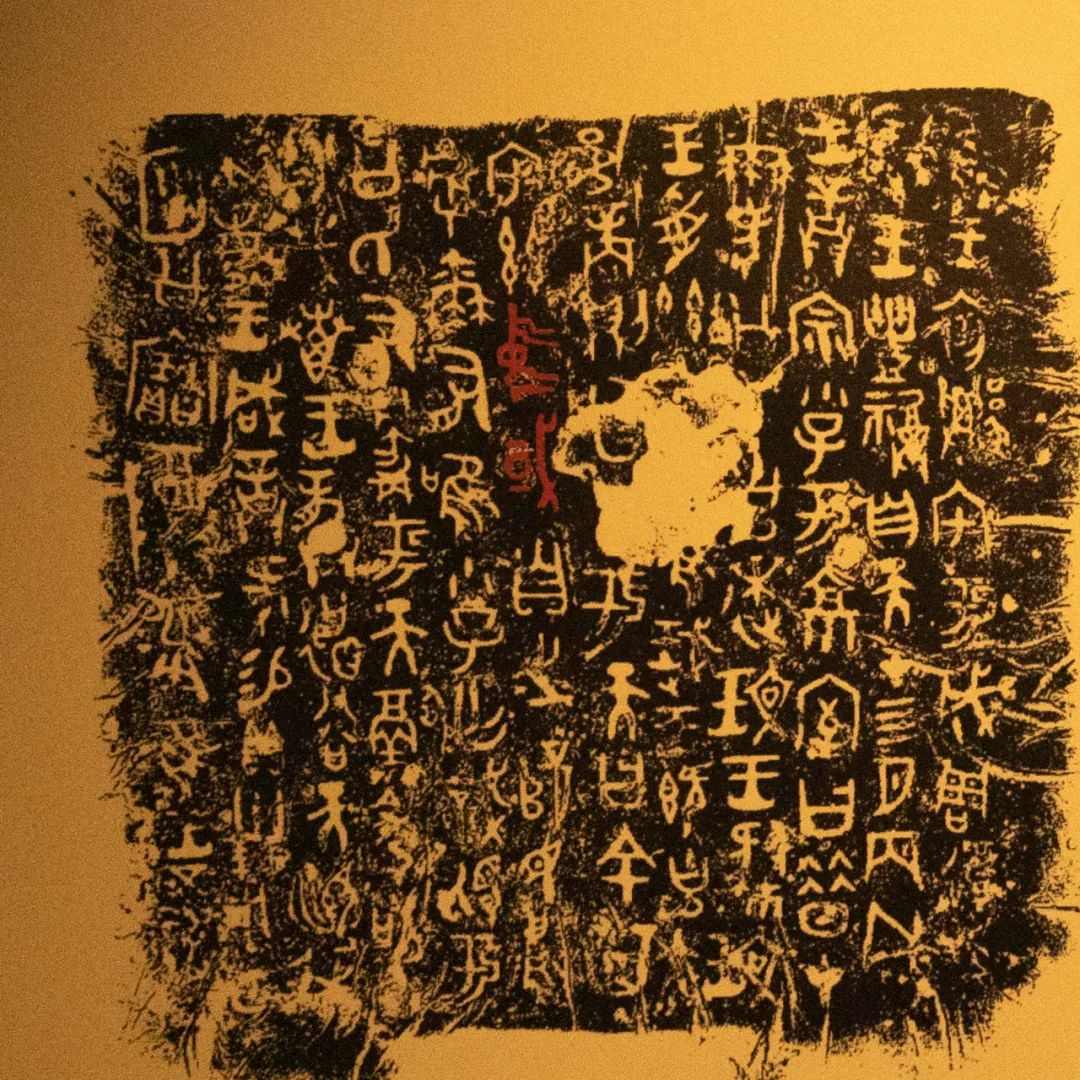 隹王初遷宅于成周復禀
珷王豐福自天才四月丙戌
王誥宗小子于京室曰昔才
爾考公氏克逨玟王肆玟
王受茲隹珷王既克大
邑商則廷告于天曰余其
宅茲中或自之乂民烏
虖爾有唯小子亡戠視于
公氏有爵于天徹令苟
享哉叀王龏德谷天順我
不每王咸誥何易貝卅朋用乍
公寶尊彝隹王五祀